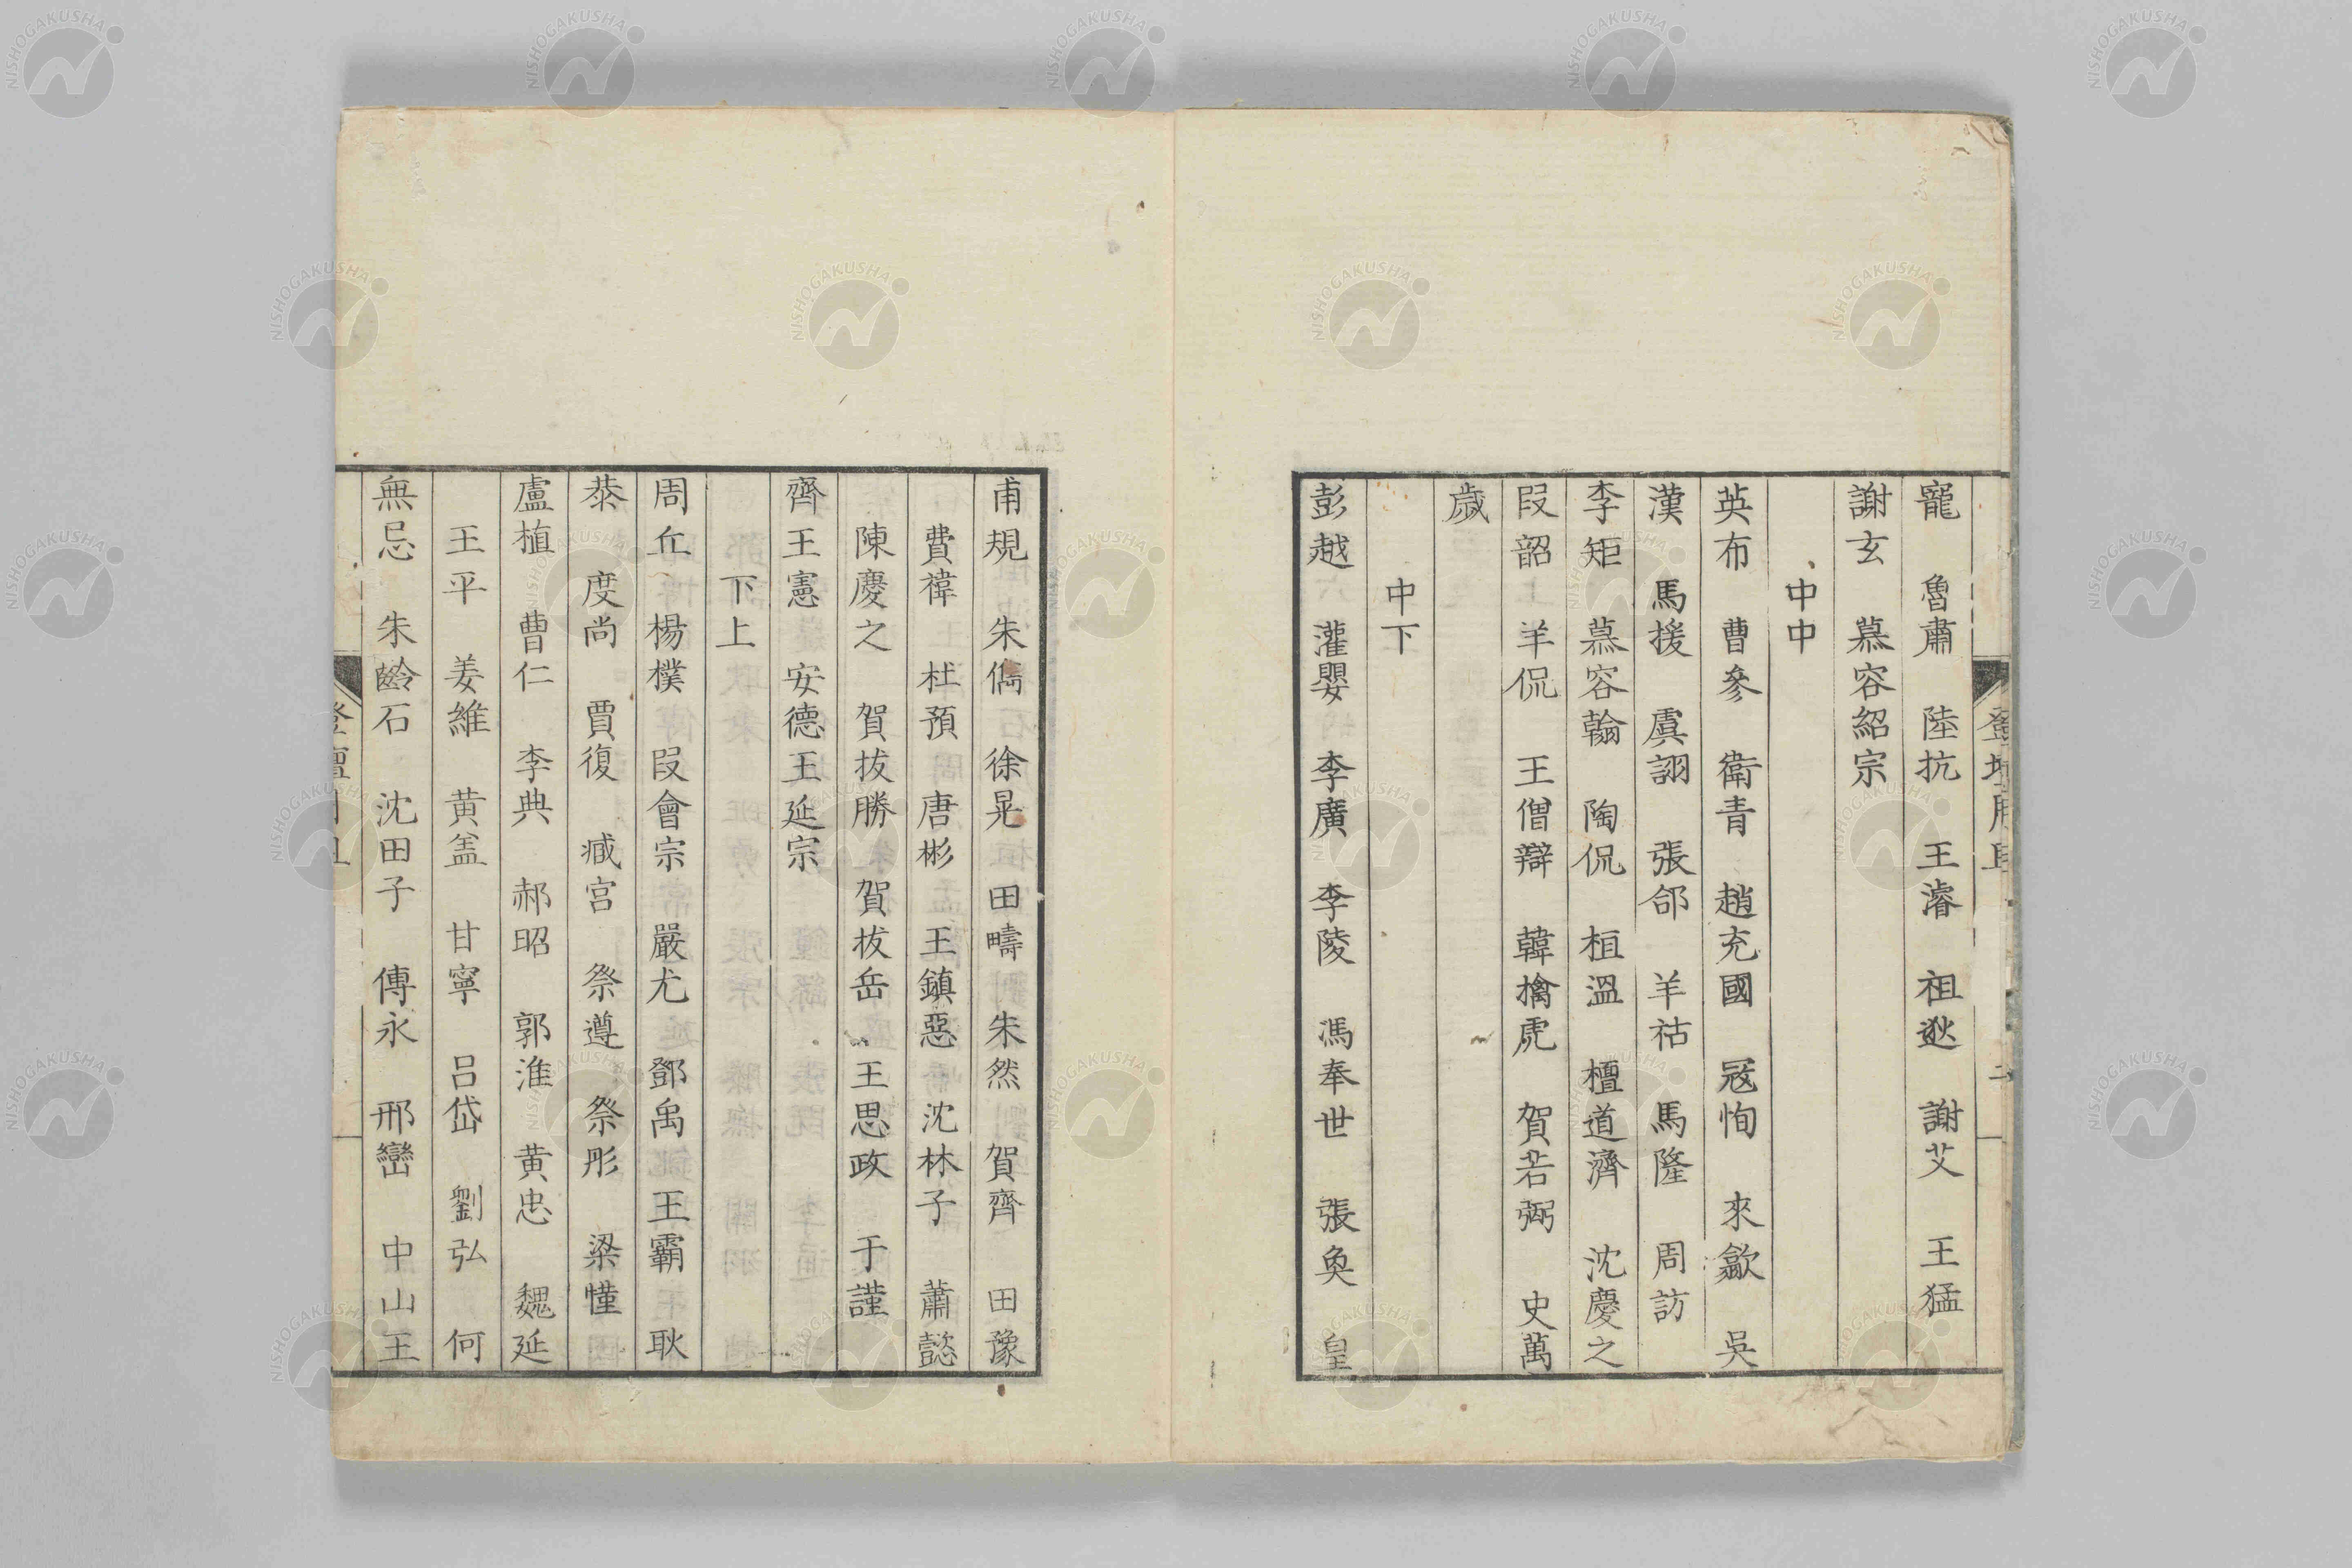 寵 魯肅 陸抗 王濬 祖逖 謝艾 王猛
謝玄 慕容紹宗
中中
英布 曹參 衛青 趙充國 冦恂 來歙 吳
漢 馬援 虞詡 張郃 羊祜 馬隆 周訪
李矩 慕容翰 陶侃 桓溫 檀道濟 沈慶之
段韶 羊侃 王僧辯 韓擒虎 賀若弼 史萬
歲
中下
彭越 灌嬰 李廣 李陵 馮奉世 張奐 皇
甫規 朱儁 徐晃 田疇 朱然 賀齊 田豫
費禕 杜預 唐彬 王鎮惡 沈林子 蕭懿
陳慶之 賀拔勝 賀拔岳 王思政 于謹
齊王憲 安德王延宗
下上
周丘 楊樸 段會宗 嚴尤 鄧禹 王霸 耿
恭 度尚 賈復 臧宮 祭遵 祭彤 梁慬
盧植 曹仁 李典 郝昭 郭淮 黃忠 魏延
王平 姜維 黃盖 甘寧 呂岱 劉弘 何
無忌 朱齡石 沈田子 傅永 邢巒 中山王
NISHOGAKUSHA